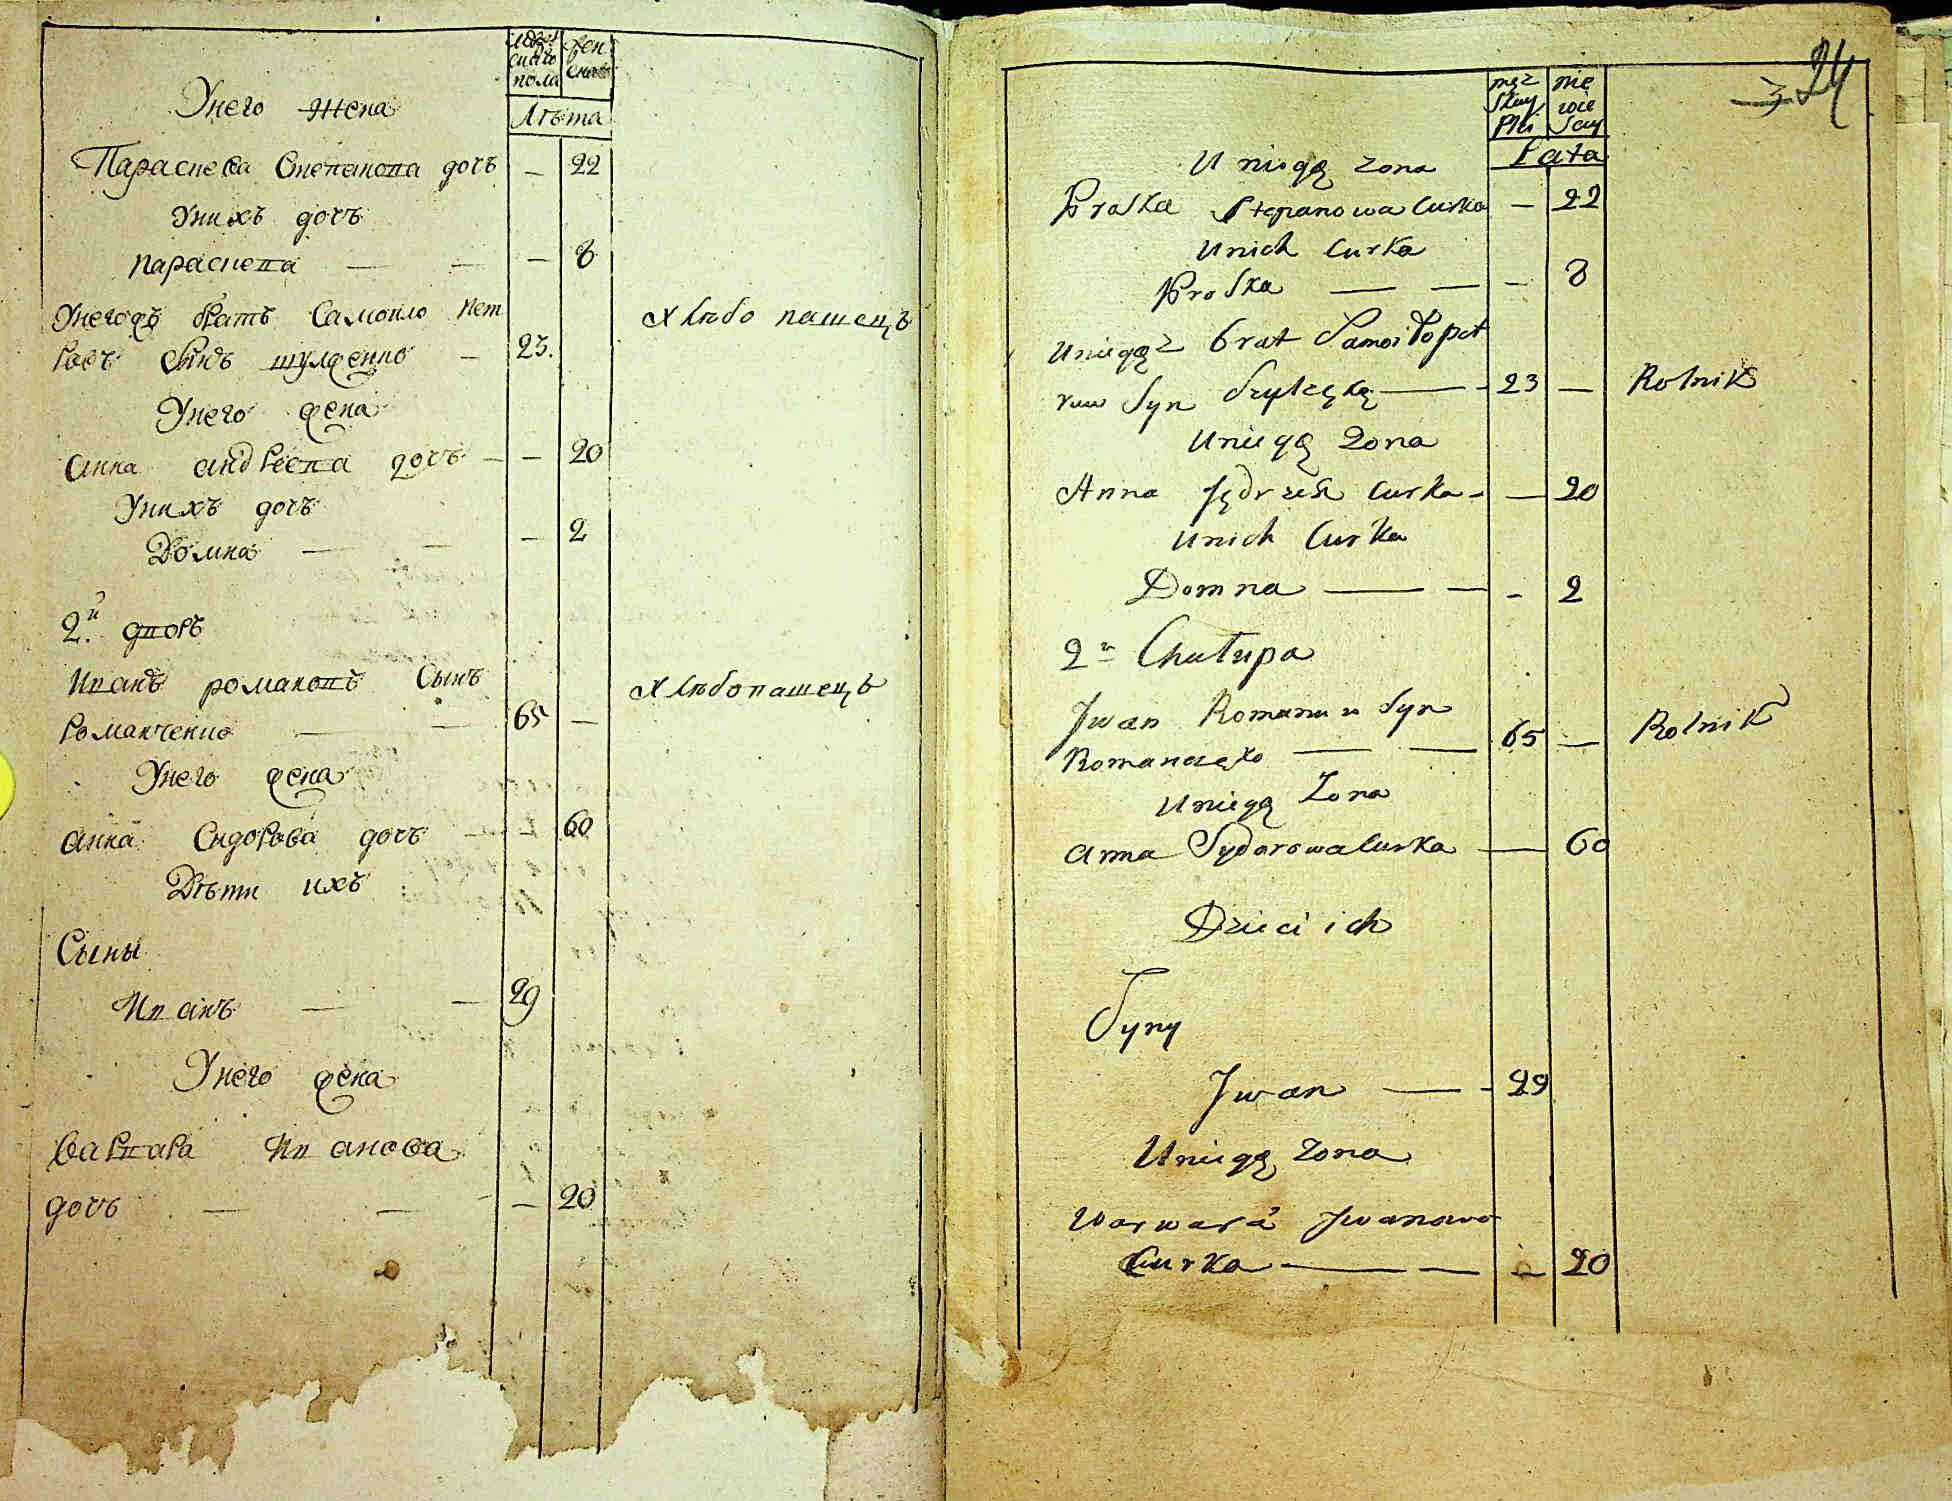 мужескаго пола
женска
Лѣта
Унего жена
Параскева Степанова дочъ — 22
Унихъ дочъ
параскева — — — 8
Унегожъ братъ Самойло пет
ровъ сынъ шулженко — 23.
хлѣбо пашецъ
Унего жена
анна андреева дочъ — — 20
Унихъ дочъ
Домна — — — 2
2.й дворъ
Иванъ романовъ Сынъ
романченко — — 65 —
хлѣбопашецъ
Унего жена
анна Сидорова дочъ — — 60
Дѣти ихъ
Сыны
Иванъ — — 29
Унего жена
варвара Иванова
дочъ — — — 20
24
męz skey Płci
nie wie sciey
Lata
U niegą zona
Praska Stepanowa Curka — 22
Unich Curka
Praska — — — 8
Uniegąz brat Samoiło pet
row Syn Szulzęko — 23 — Rolnik
Uniegą Zona
Anna Jędrzeia Curka — — 20
Unich Curka
Domna — — — 2
2ª Chałupa
Jwan Romanow Syn
Romanczęko — — 65 — Rolnik
Uniegą Zona
Anna Sydorowa Curka — 60
Dzieci ich
Syny
Jwan — — 29
Uniegą zona
Warwara Jwanowa
Curka — — — 20